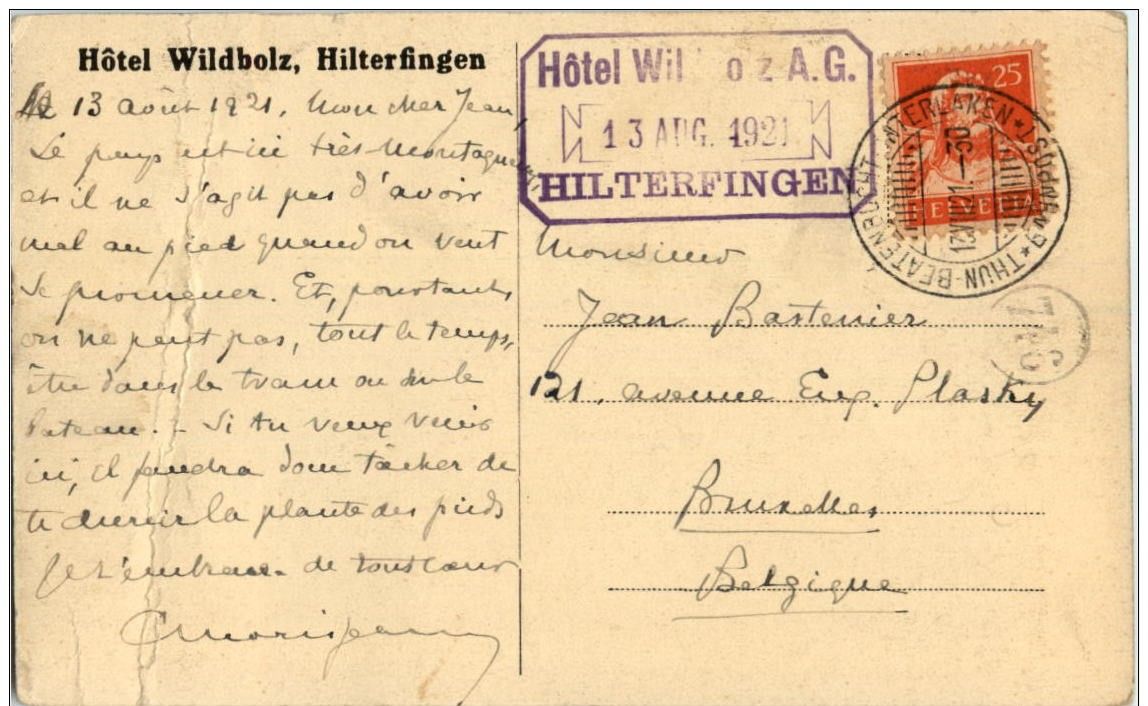 Hôtel Wildbolz, Hilterfingen
le 13 août 1921. Mon cher Jean,
Le pays est ici très montagneux
et il ne s'agit pas d'avoir
mal au pied quand on veut
se promener. Et, pourtant
on ne peut pas, tout le temps,
être dans le tram ou sur le
bateau. - Si tu veux venir
ici, il faudra donc tâcher de
te durcir la plante des pieds
Je t'embrasse de tout cœur
Hôtel Wil o z A.G.
13 AUG. 1921
HILTERFINGEN
25
HELVETIA
THUN-BEATENBUCHT-INTERLAKEN
13.VIII.21.-30
Monsieur
Jean Bastenier
121, avenue Eug. Plasky
Bruxelles
Belgique